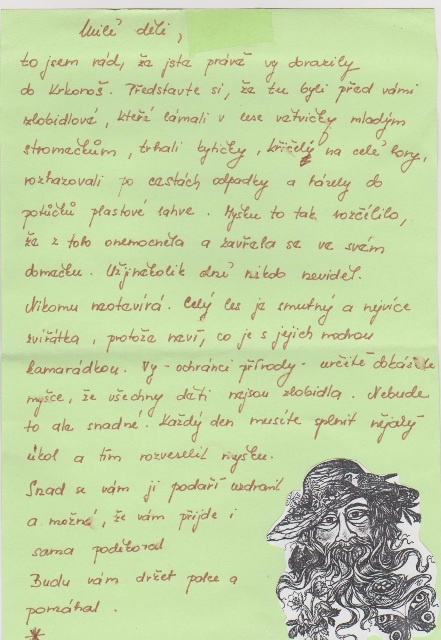 Milé děti,
to jsem rád, že jste právě vy dorazily
do Krkonoš. Představte si, že tu byli před vámi
zlobidlové, kteří lámali v lese větvičky mladým
stromečkům, trhali kytičky, křičely na celé hory,
rozhazovali po cestách odpadky a házely do
potůčků plastové lahve. Myšku to tak rozčílilo,
že z toho onemocněla a zavřela se ve svém
domečku. Už několik dní nikdo neviděl.
Nikomu neotevírá. Celý les je smutný a nejvíce
zvířátka, protože neví, co je s jejich
kamarádkou. Vy - ochránci přírody - určitě dokážete
myšce, že všechny děti nejsou zlobidla. Nebude
to ale snadné. Každý den musíte splnit nějaký
úkol a tím rozveselit myšku.
Snad se vám ji podaří uzdravit
a možná, že vám přijde i
sama poděkovat
Budu vám držet palce a
pomáhat.
*